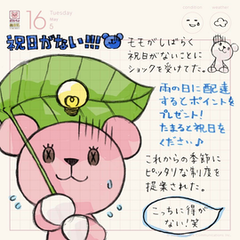 16
Tuesday
祝日がない!!!
そもそもがしばらく
祝日がないことに
ショックを受けてた。
雨の日に配達
するとポイントを
プレゼント!
たまると祝日を
ください♪
これからの季節に
ピッタリな制度を
提案された。
こっちに得が
ない!笑